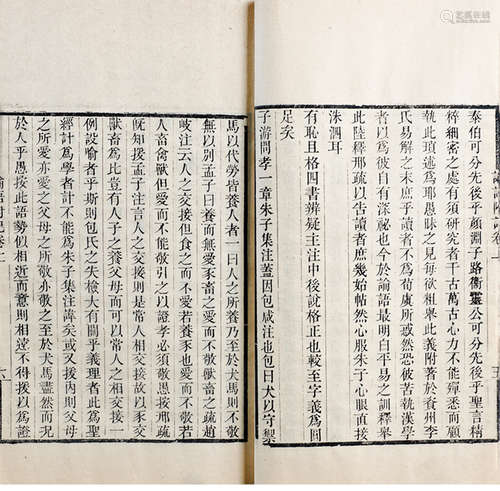 泰伯可分先後乎顔淵子路衛靈公可分先後乎聖言精
粹細密之處有須研究者千古萬古心力不能殫悉而顧
執此瑣述爲耶愚昧之見每欲粗舉此義附著於賓州李
氏易解之末庶乎讀者不爲荀虞所惑然恐彼苦執漢學
者以爲彼自有深祕也今於論語最明白平易之訓釋舉
此陸釋邢疏以古讀者庶幾始帖然心服朱子心眼直接
洙泗耳
有恥且格四書辨疑主注中後說格正也較至字義爲回
足矣
子游問孝一章朱子集注蓋因包咸注也包曰犬以守禦
馬以代勞皆養人者一曰人之所養乃至於犬馬則不敬
無以别孟子曰養而無愛豕畜之愛而不敬獸畜之疏趙
岐注云人之交接但食之而不愛若養豕也愛而不敬若
人畜禽獸但愛而不能敬引之以證孝必須敬愚所疏
既知援孟子注言人之交接則是常人相交接故以豕交
獸畜爲比豈有人子之養父母而可以常人之相交接一
例設喻者乎斯則包氏之失檢大有關乎義理者此爲聖
經計爲學者計不能爲朱子集注諱矣或又援内則父母
之所愛亦愛之父母之所敬亦敬之至於犬馬盡然而况
於人乎愚按此語勢似相近而意則相遠不得援以爲證
論語附記卷上
六